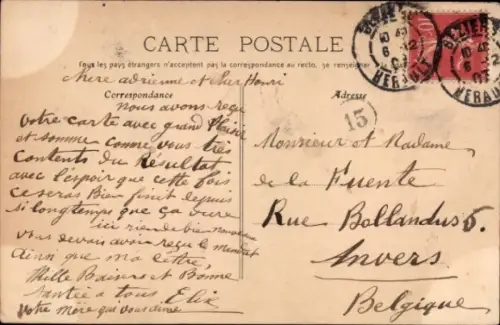 CARTE POSTALE
Tous les pays étrangers n'acceptent pas la correspondance au recto, se renseigner
Correspondance
Adresse
Chere adrienne et cher Henri
nous avons reçu
votre Carte avec grand plaisir
et somme comme vous tres
Contents du Résultat
avec l'espoir que cette fois
ce seras Bien finit depuis
si longtemps que ça dure
ici rien de bien nouveau
vous devais avoir reçu le mandat
ainsi que ma lettre
Mille Baisers et Bonne
Santée a tous Elix
votre Mère qui vous aime
15
Monsieur et Madame
de la Fuente
Rue Bollandus 5.
Anvers
Belgique
BEZIERS
6
HERAULT
BEZIERS
6
HERAULT